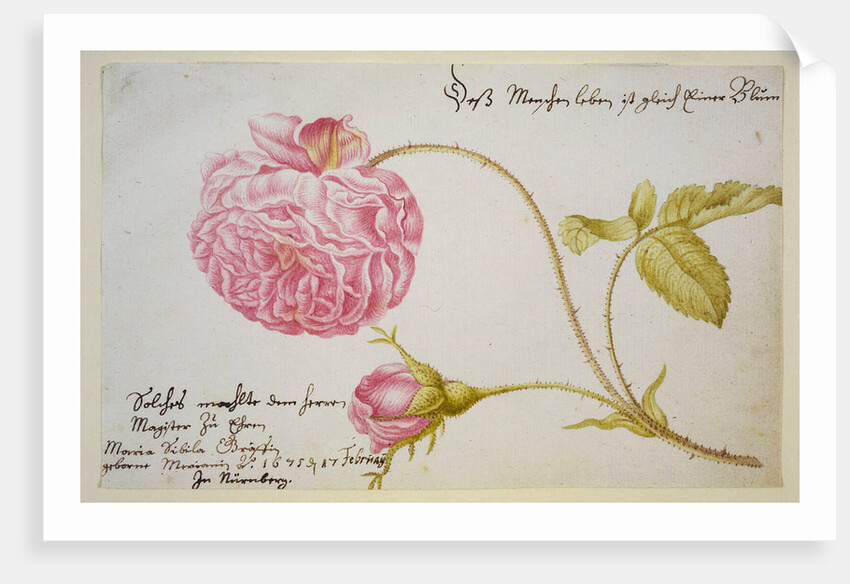 Deß Menschen leben ist gleich Einer Blum
Solches mahlte dem herren
Magister Zu Ehren
Maria Sibila Gräffin
geborne Merianin A: 1675 d 17 February
In Nürnberg.